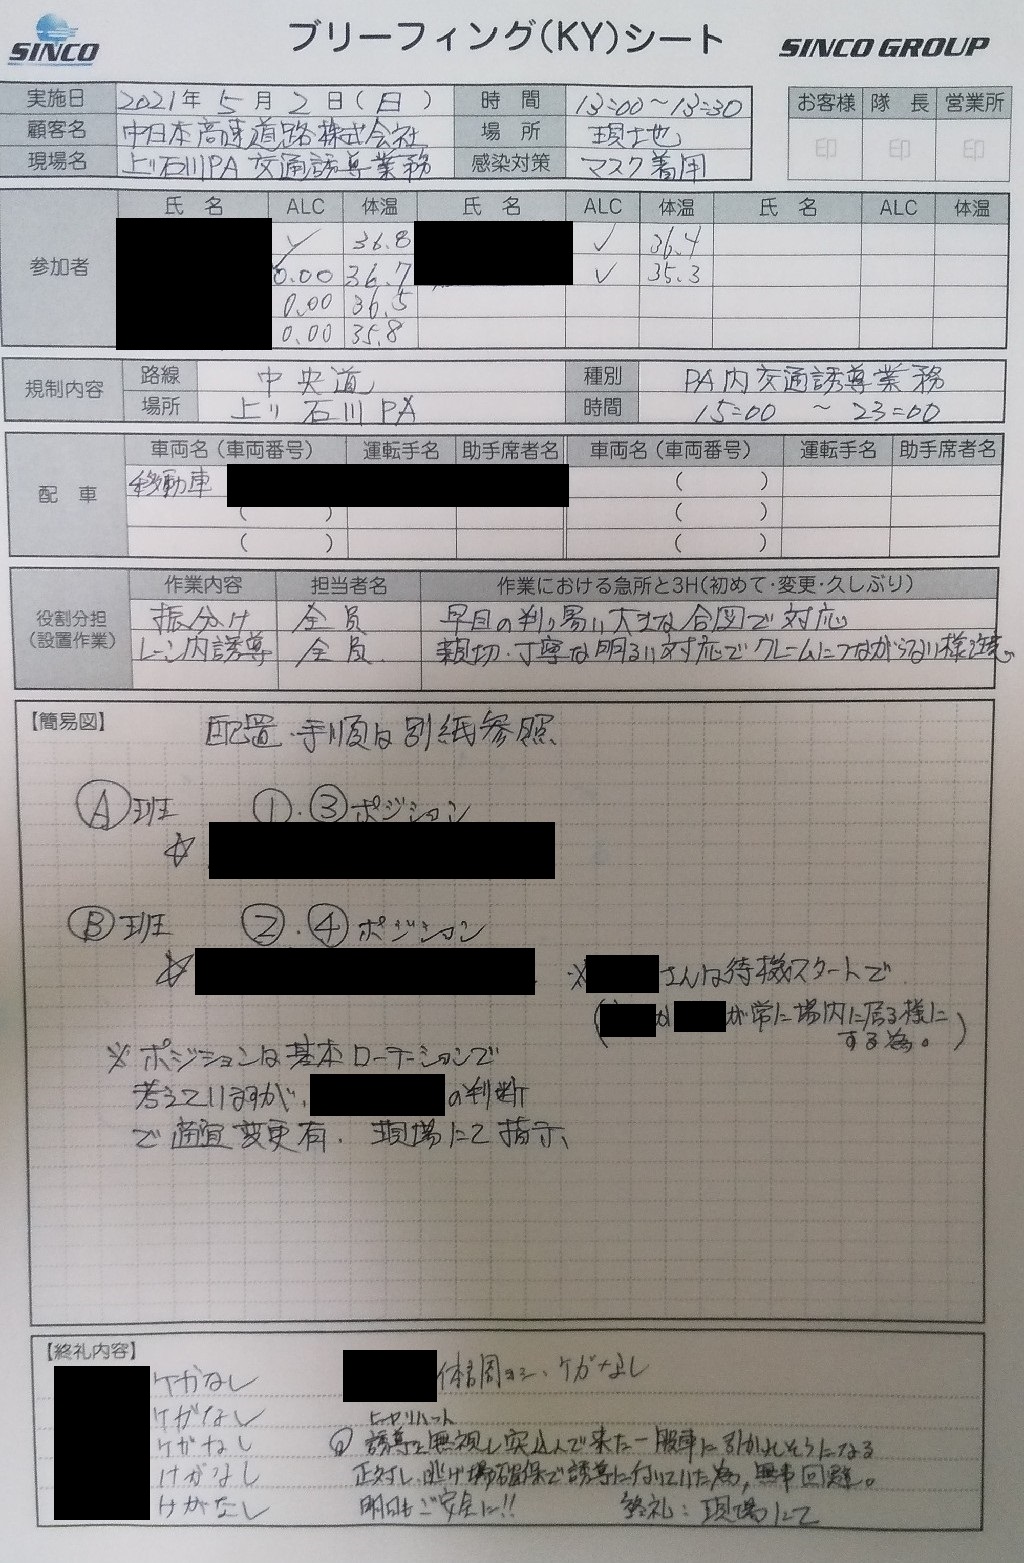 SINCO
ブリーフィング(KY)シート
SINCO GROUP
実施日 2021年 5月 2日(日) 時間 13:00～13:30
顧客名 中日本高速道路株式会社 場所 現地
現場名 上り石川PA 交通誘導業務 感染対策 マスク着用
お客様 隊長 営業所
印 印 印
参加者
氏名 ALC 体温 氏名 ALC 体温 氏名 ALC 体温
✓ 36.8 ✓ 36.4
0.00 36.7 ✓ 35.3
0.00 36.5
0.00 35.8
規制内容
路線 中央道 種別 PA内交通誘導業務
場所 上り 石川PA 時間 15:00 ～ 23:00
配車
車両名(車両番号) 運転手名 助手席者名 車両名(車両番号) 運転手名 助手席者名
移動車 ( )
( ) ( )
( ) ( )
役割分担
(設置作業)
作業内容 担当者名 作業における急所と3H(初めて・変更・久しぶり)
振分け 全員 早目の判り易い大きな合図で対応
レーン内誘導 全員 親切・丁寧な明るい対応でクレームにつながらない様注意。
【簡易図】
配置・手順は別紙参照
Ⓐ班 ①・③ポジション
☆
Ⓑ班 ②・④ポジション
☆
※ さんは待機スタートで
( か が常に場内に居る様に
する為。)
※ ポジションは基本ローテーションで
考えていますが、 の判断
で適宜変更有。 現場にて指示、
【終礼内容】
ケがなし 体調ヨシ、ケガなし
ケガなし ヒヤリハット
ケガなし 誘導を無視し突込んで来た一般車に引かれそうになる
けがなし 正対し、逃げ場確保で誘導に付いていた為、無事回避。
けがなし 明日もご安全に!! 終礼:現場にて